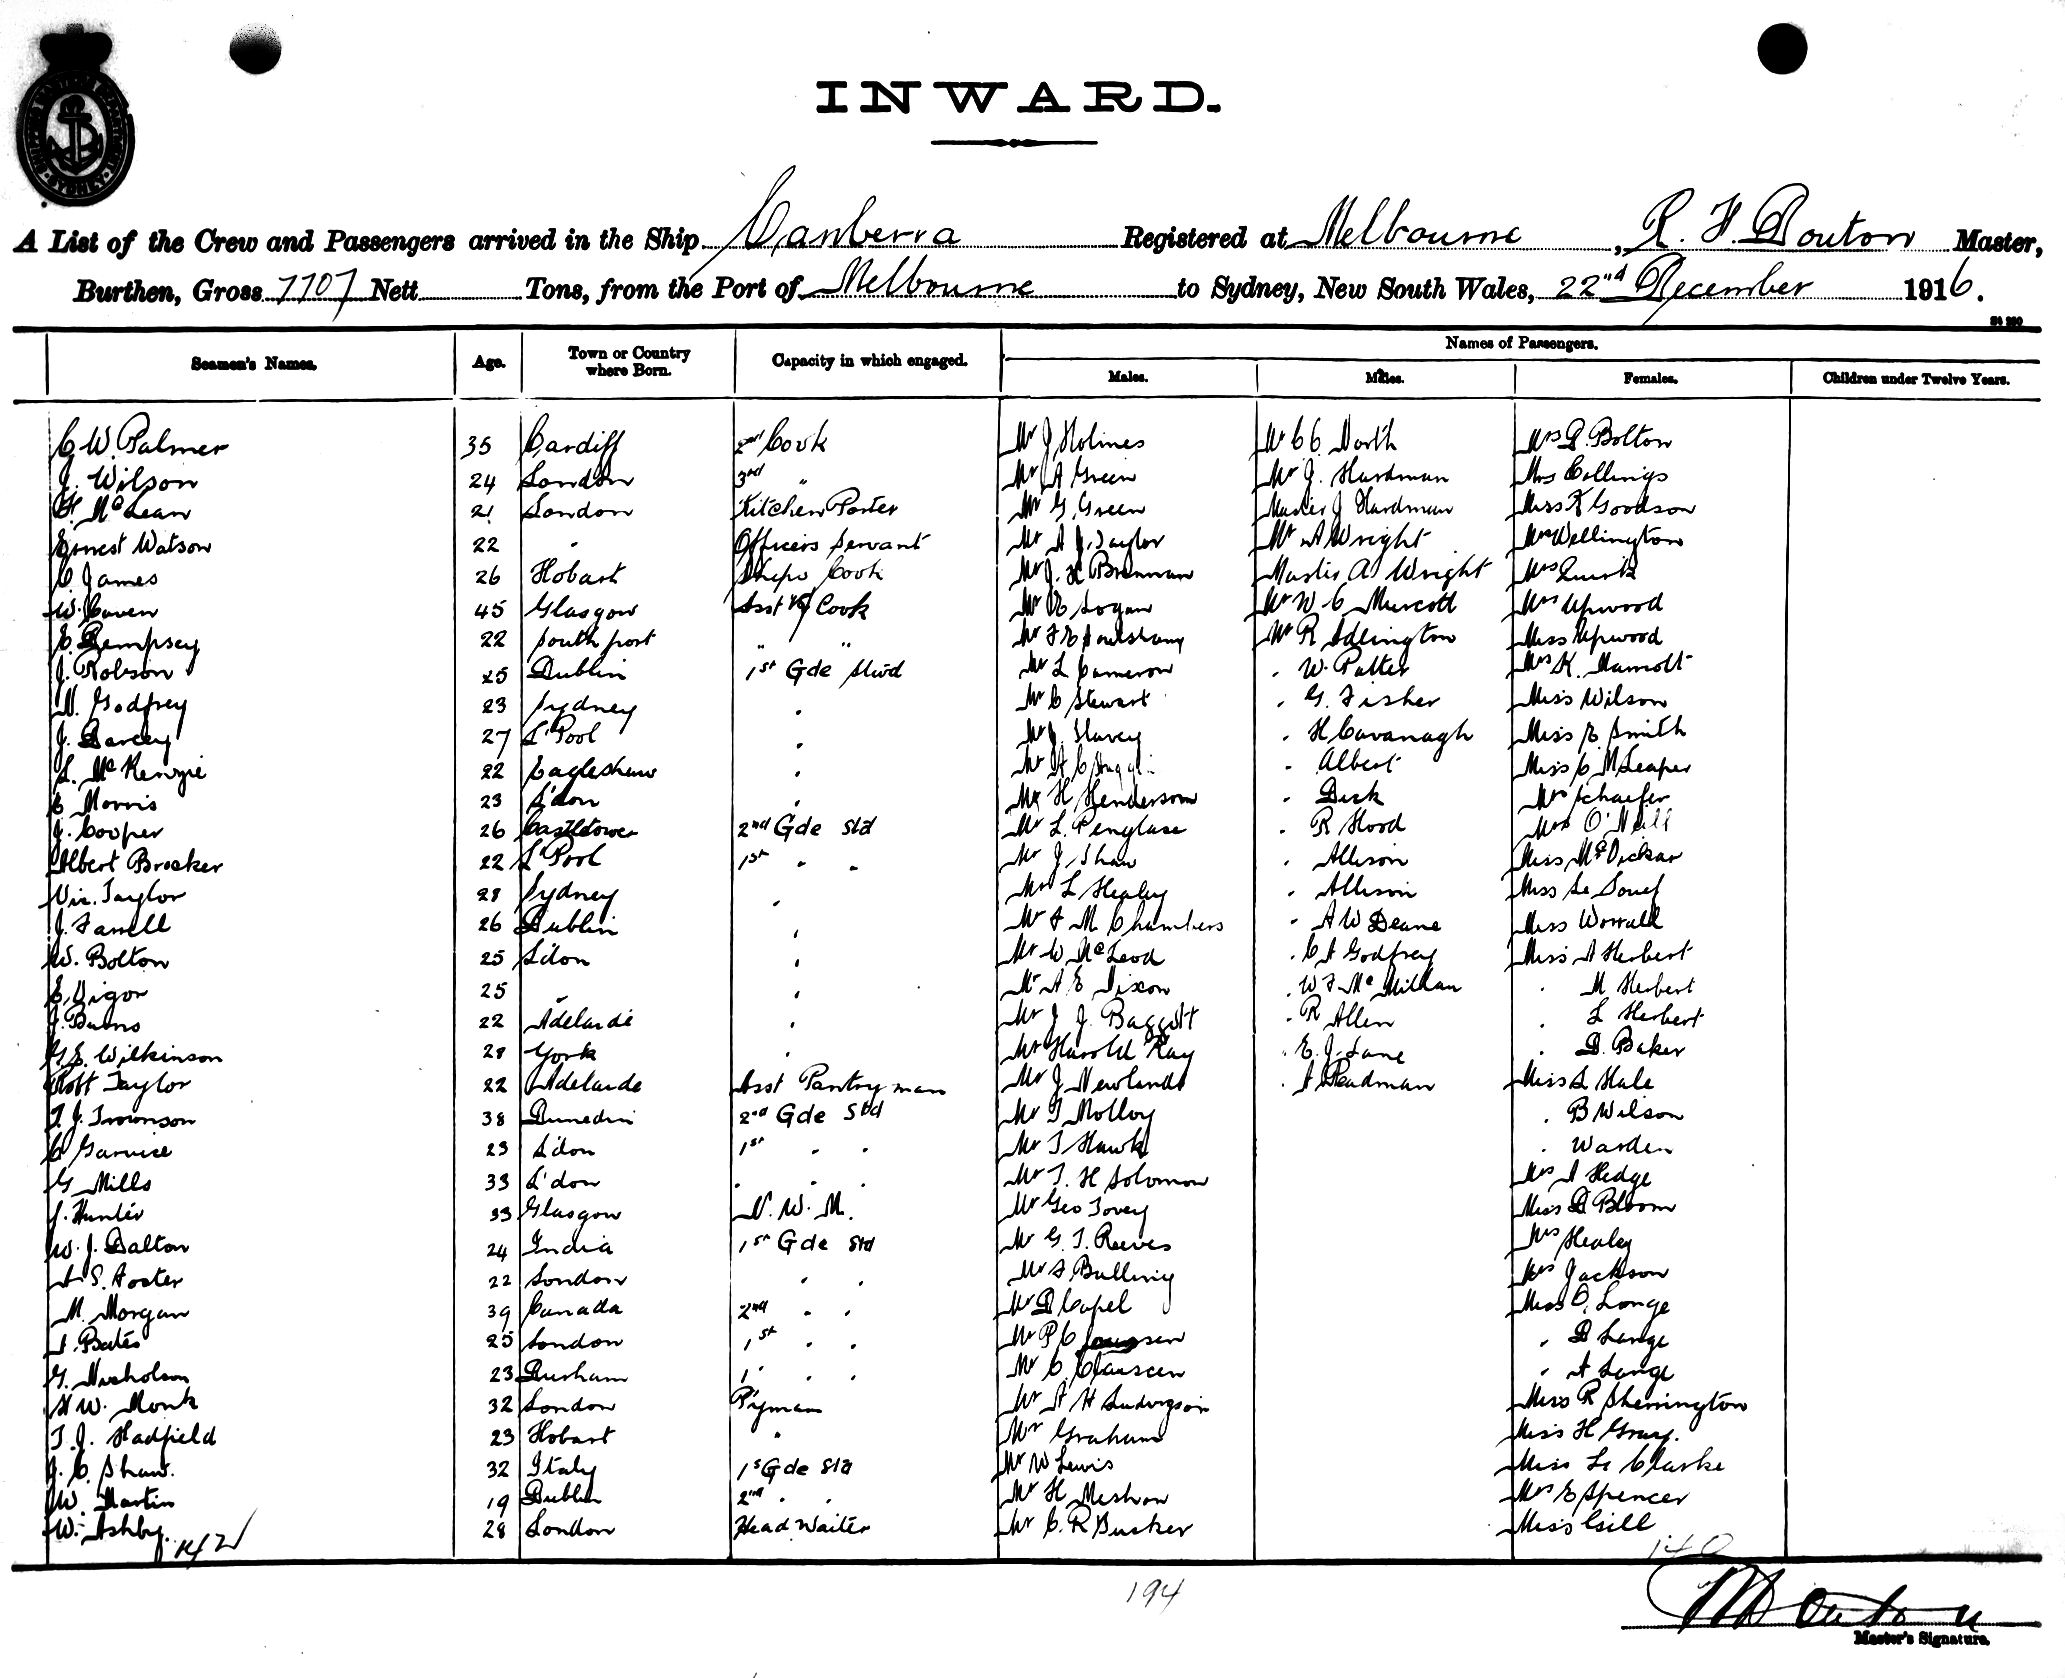 INWARD.
A List of the Crew and Passengers arrived in the Ship Canberra Registered at Melbourne, R. F. Douton Master,
Burthen, Gross 7707 Nett Tons, from the Port of Melbourne to Sydney, New South Wales, 22nd December 1916.
Names of Passengers.
Seamen's Names. Age. Town or Country where Born. Capacity in which engaged. Males. Males. Females. Children under Twelve Years.
C W. Palmer 35 Cardiff 2nd Cook Mr J Holmes Mr C C. North Mrs D. Bolton
J. Wilson 24 London 3rd " Mr A Green Mr J. Hardman Mrs Collings
F. McLean 21 London Kitchen Porter Mr G. Green Master J Hardman Miss K Goodson
Ernest Watson 22 " Officers Servant Mr A J. Taylor Mr A Wright Mrs Wellington
C James 26 Hobart Ships Cook Mr J. H Brennan Master A. Wright Mrs Quirk
W. Caven 45 Glasgow Asst Cook Mr E Logan Mr W C Murcott Mrs Upwood
E. Dempsey 22 Southport " " Mr F E Mr R Adlington Miss Upwood
J. Robson 25 Dublin 1st Gde Stwd Mr L Cameron " W. Potter Mrs K. Marriott
N. Godfrey 23 Sydney " Mr C Stewart " G. Fisher Miss Wilson
J. Darcey 27 L'Pool " Mr J. Harvey " H Cavanagh Miss E Smith
L. McKenzie 22 Eagleshaw " Mr A C " Albert Miss C McLeaper
E Morris 23 L'don " Mr H Henderson " Dick Mrs Schaefer
J. Cooper 26 Castletower 2nd Gde Std Mr L. Penglase " R Hood Mrs O'Neill
Albert Brocker 22 L'Pool 1st " " Mr J. Shaw " Allison Miss McVickar
Vic. Taylor 28 Sydney " Mr L Healey " Allison Miss Le Souef
J. Farrell 26 Dublin " Mr F M Chambers " A W Deane Miss Worrall
W. Bolton 25 L'don " Mr W McLeod " C A Godfrey Miss A Herbert
E. Vigor 25 " " Mr A E Dixon " W F McMillan " M Herbert
J. Burns 22 Adelaide " Mr J J. Baggott " R Allen " L Herbert
G. E. Wilkinson 28 York " Mr Harold Ray " E. J. Lane " D. Baker
Robt Taylor 22 Adelaide Asst Pantryman Mr J Newlands " A Readman Miss L Hale
T. J. Townson 38 Dunedin 2nd Gde Std Mr T Molloy " B Wilson
C Garvice 23 L'don 1st " " Mr T Hawk " Warden
G Mills 33 L'don " " " Mr T. H Solomon Mrs A Hedge
J. Hunter 33 Glasgow N. W. M. Mr Geo Tovey Miss D Bloom
W. J. Dalton 24 India 1st Gde Std Mr G. T. Reeves Mrs Healey
A. S. Foster 22 London " " Mr F. Bulling Mrs Jackson
M. Morgan 39 Canada 2nd " " Mr D Capel Miss O. Lange
A. Bates 25 London 1st " " Mr P C " D Lange
G. Nicholson 23 Durham 1 " " Mr C. Claussen " A Lange
H W. Monk 32 London P'yman Mr A H Ludvigson Miss R Sherrington
T. J. Hadfield 23 Hobart " Mr Graham Miss H Gray.
J. C. Shaw. 32 Italy 1s Gde Std Mr W Lewis Miss L. Clarke
W. Martin 19 Dublin 2nd " " Mr H Meshon Mrs E Spencer
W. Ashby. 28 London Head Waiter Mr C. R Busker Miss Gill
142 140
194
Master's Signature.